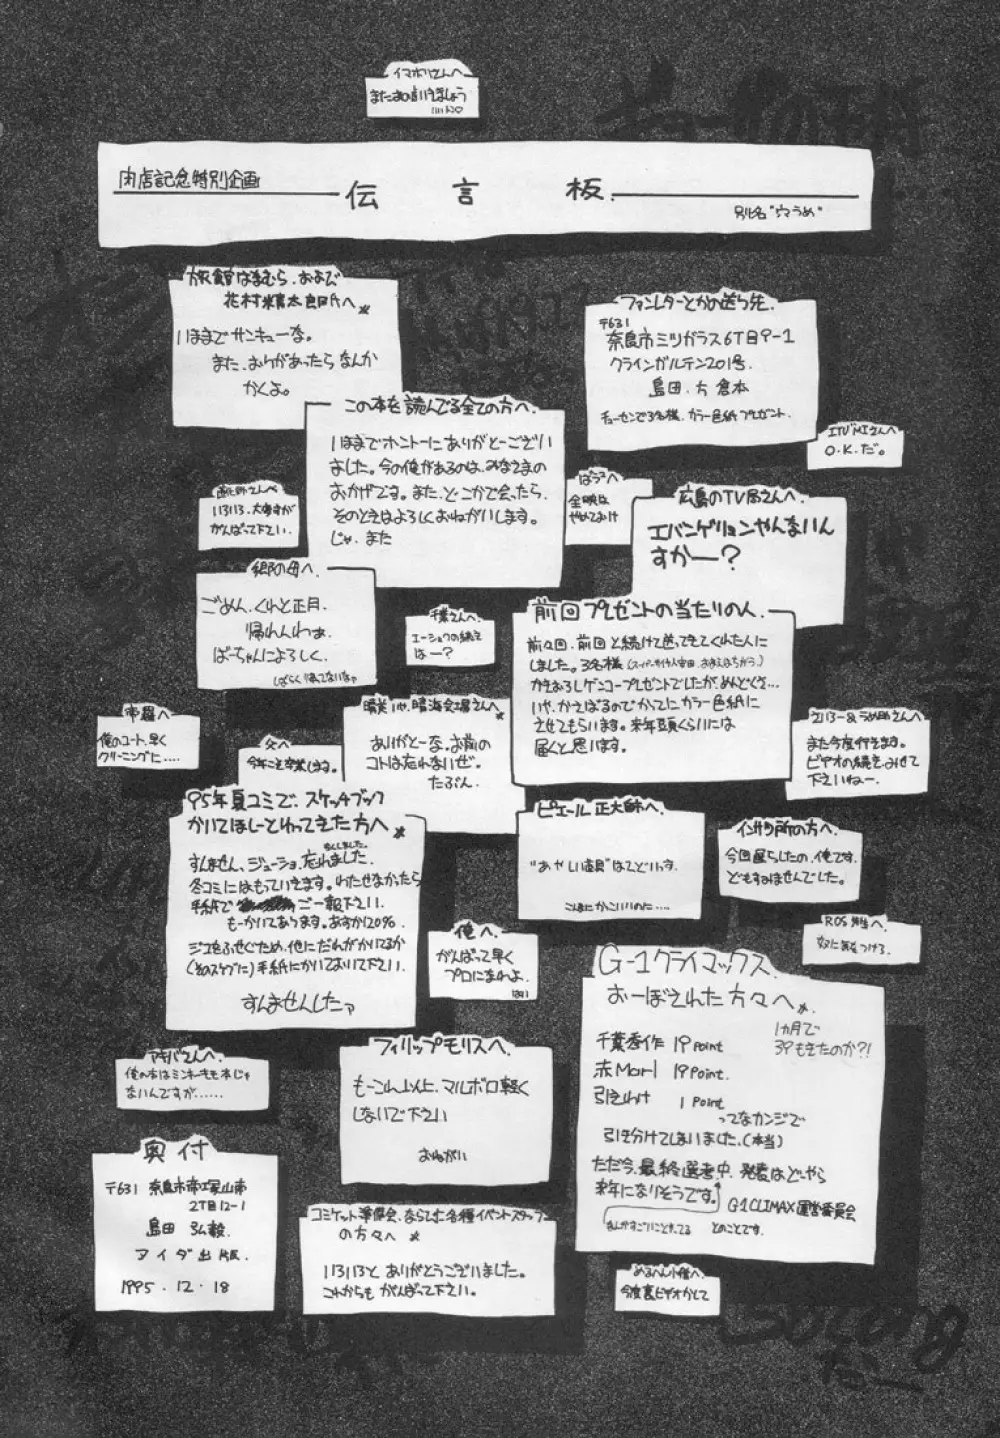 イマホリさんへ
またお会いしましょう
肉店記念特別企画
伝言板
別名"穴うめ"
旅館はまむら、および
花村米喜太郎氏へ
いままでサンキューな。
また、おりがあったらなんか
かくよ。
ファンレターとかの送り先
〒631
奈良市ミツガラス6丁目9-1
クラインガルテン201号
島田.方 倉本
チューセンで3名様、カラー色紙プレゼント.
この本を読んでる全ての方へ
いままでホントーにありがとーござい
ました。今の俺があるのは、みなさまの
おかげです。また、どこかで会ったら、
そのときはよろしくおねがいします。
じゃ、また
O.K.だ。
いろいろ、大変すが
がんばって下さい.
全映は
やめておけ
広島のTV局さんへ
エバンゲリョンやんないん
すかー?
郷の母へ
ごめん、くれと正月、
帰れんわぁ.
ばーちゃんによろしく.
しばらく帰ってないなァ
千葉さんへ
エーショウの続き
はー?
前回プレゼントの当たりの人
前々回、前回と続けて送ってきてくれた人に
しました。3名様
かきおろしゲンコープレゼントでしたが、めんどくせ…
いや、かえばるのでかってにカラー色紙に
させてもらいます。来年頭くらいには
届くと思います。
帝羅へ
俺のコート、早く
クリーニングに.....
父へ
今年こそ卒業します。
晴美いや、晴海会場さんへ
ありがとーな、お前の
コトは忘れないぜ。
たぶん.
また今度行きます。
ビデオの続き、みせて
下さいねー.
95年夏コミで、スケッチブック
かいてほしーとわってきた方へ
すんません、ジューショ、忘れました.
冬コミにはもっていきます。わたせなかたら
手紙で ご一報下さい.
もーかいてあります。あすか120%
ジコをふせぐため、他にだれがかいてるか
(そのスケブに)手紙にかいておいて下さい.
すんませんしたァ
ピエール正大師へ
"あやしい道具"はこどいいす.
こんなにかっこいいのに....
インサツ所の方へ
今回遅らしたの、俺です.
どもすみませんでした。
ROS先生へ
奴に気をつけろ.
俺へ
がんばって早く
プロになれよ.
はい
G-1クライマックス
おーぼされた方々へ
1ヵ月で
39もきたのか?!
千葉秀作 19point
赤Mari 19point.
引きわけ 1point
ってなカンジで
引き分けてしまいました.(本当)
ただ今、最終選考中、発表はどーやら
来年になりそうです。
G-1CLIMAX運営委員会
とのことです.
アキバさんへ
俺の本はミンキーモモ本じゃ
ないんですが......
フィリップモリスへ
もーこれ以上に、マルボロ軽く
しないで下さい
おねがい
奥付
〒631 奈良市帝塚山南
2丁目12-1
島田 弘毅
アイダ出版.
1995.12.18
コミケット準備会、ならびに各種イベントスタッフ
の方々へ
いろいろと、ありがとうございました。
これからも がんばって下さい。
めるへん小僧へ
今度裏ビデオかして